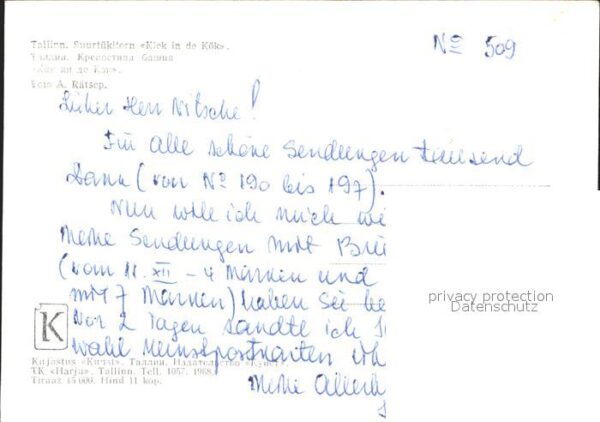 Tallinn. Suurtükitorn «Kiek in de Kök».
Таллин. Крепостная башня
«Кик ин де Кэк».
Foto A. Rätsep.
№ 509
Lieber Herr Nitsche!
Für alle schöne Sendungen tausend
Dank (von № 190 bis 197).
Nun will ich mich wi
Meine Sendungen mit
(vom 11. XII – 4 Marken und
mit 7 Marken) haben Sie be
Vor 2 Tagen sandte ich
wahl Kunstpostkarten
Meine Allerb
K
Kirjastus «Kunst». Таллин. Издательство «Кунст».
TK «Harju». Tallinn. Tell. 1057. 1968.
Tiraaž 45 000. Hind 11 kop.
privacy protection
Datenschutz